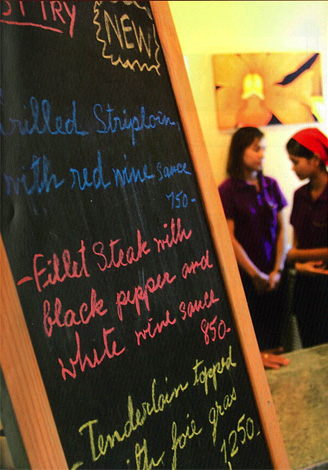 ST TRY
NEW
Grilled Striploin,
with red wine sauce
750.-
-Fillet Steak with
black pepper and
white wine sauce
850.-
-Tenderloin topped
with foie gras
1250.